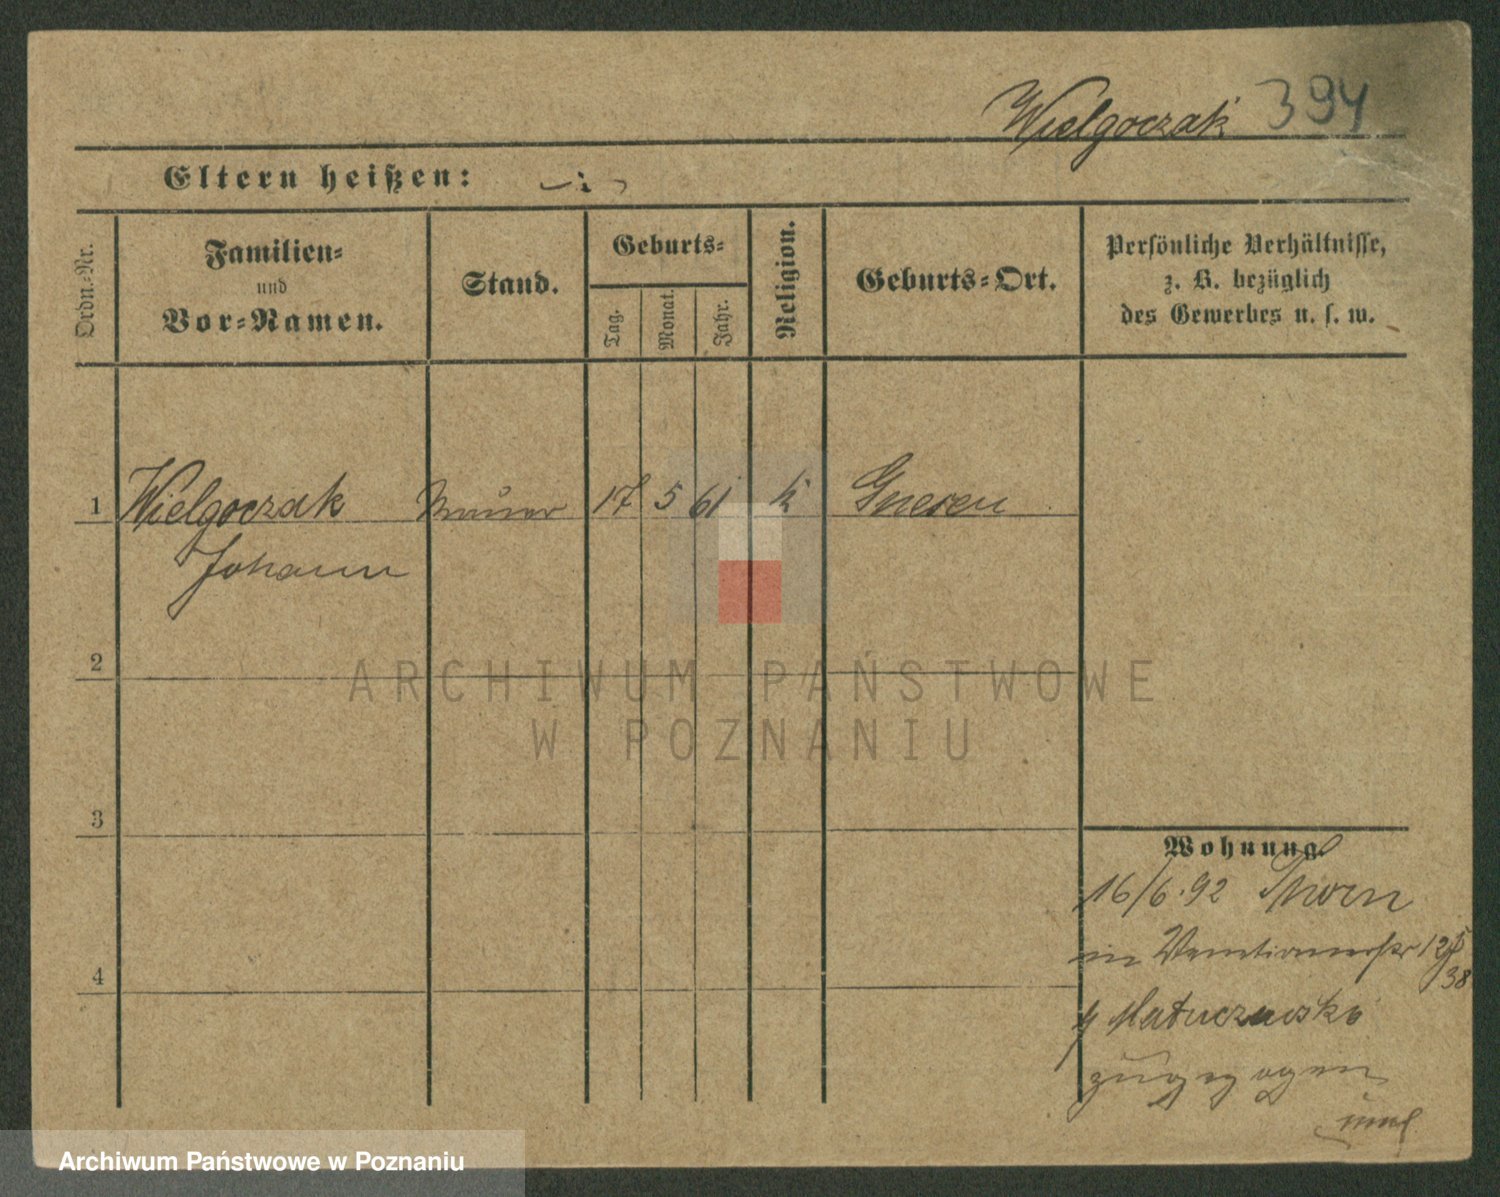 Wielgoczak 394
Eltern heißen:
Ordn.-Nr.
Familien-
und
Vor-Namen.
Stand.
Geburts-
Tag.
Monat.
Jahr.
Religion.
Geburts-Ort.
Persönliche Verhältnisse,
z. B. bezüglich
des Gewerbes u. s. w.
1 Wielgoczak Maurer 17 5 61 k Gnesen
Johann
2
3
4
Wohnung.
16/6.92 Thorn
in
Matuczewski
zugezogen
ARCHIWUM PAŃSTWOWE
W POZNANIU
Archiwum Państwowe w Poznaniu